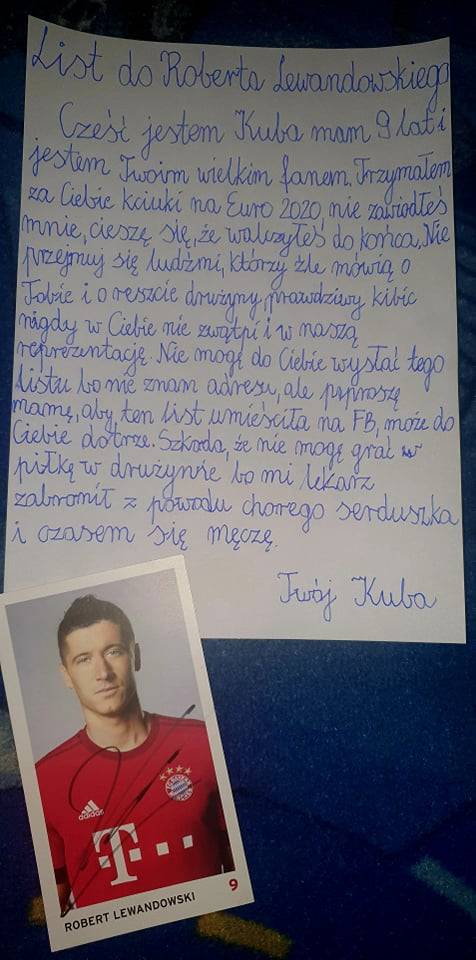 List do Roberta Lewandowskiego
Cześć jestem Kuba mam 9 lat i
jestem Twoim wielkim fanem. Trzymałem
za Ciebie kciuki na Euro 2020, nie zawiodłeś
mnie, cieszę się, że walczyłeś do końca. Nie
przejmuj się ludźmi, którzy źle mówią o
Tobie i o reszcie drużyny, prawdziwy kibic
nigdy w Ciebie nie zwątpi i w naszą
reprezentację. Nie mogę do Ciebie wysłać tego
listu bo nie znam adresu, ale poproszę
mamę, aby ten list umieściła na FB, może do
Ciebie dotrze. Szkoda, że nie mogę grać w
piłkę w drużynie bo mi lekarz
zabronił z powodu chorego serduszka
i czasem się męczę.
Twój Kuba
adidas
FC BAYERN MÜNCHEN
T
ROBERT LEWANDOWSKI
9